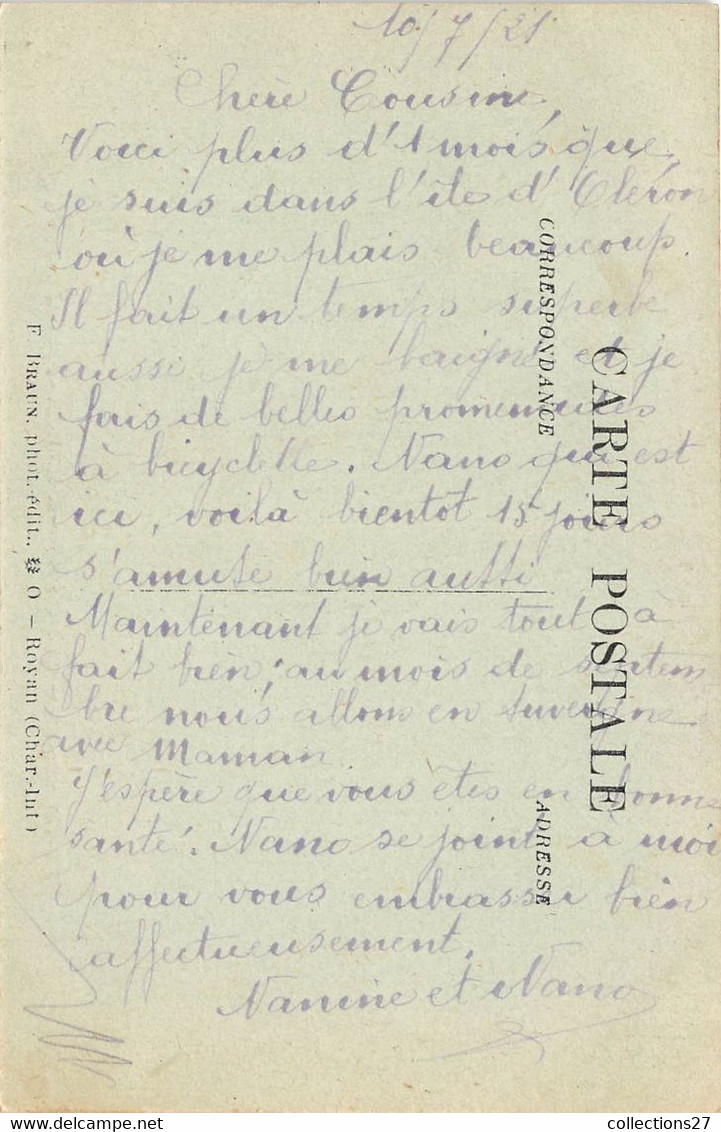 10/7/21
Chère Cousine,
Voici plus d'1 mois que
je suis dans l'île d'Oléron
où je me plais beaucoup.
Il fait un temps superbe
aussi je me baigne et je
fais de belles promenades
à bicyclette. Nano qui est
ici, voilà bientot 15 jours
s'amuse bien aussi
Maintenant je vais tout à
fait bien; au mois de septem
bre nous allons en Auvergne
avec Maman.
J'espère que vous êtes en bonne
santé. Nano se joint à moi
pour vous embrasser bien
affectueusement.
Nanine et Nano
CARTE POSTALE
CORRESPONDANCE
ADRESSE
F. BRAUN, phot.-édit., O – Royan (Char.-Inf)
collections27